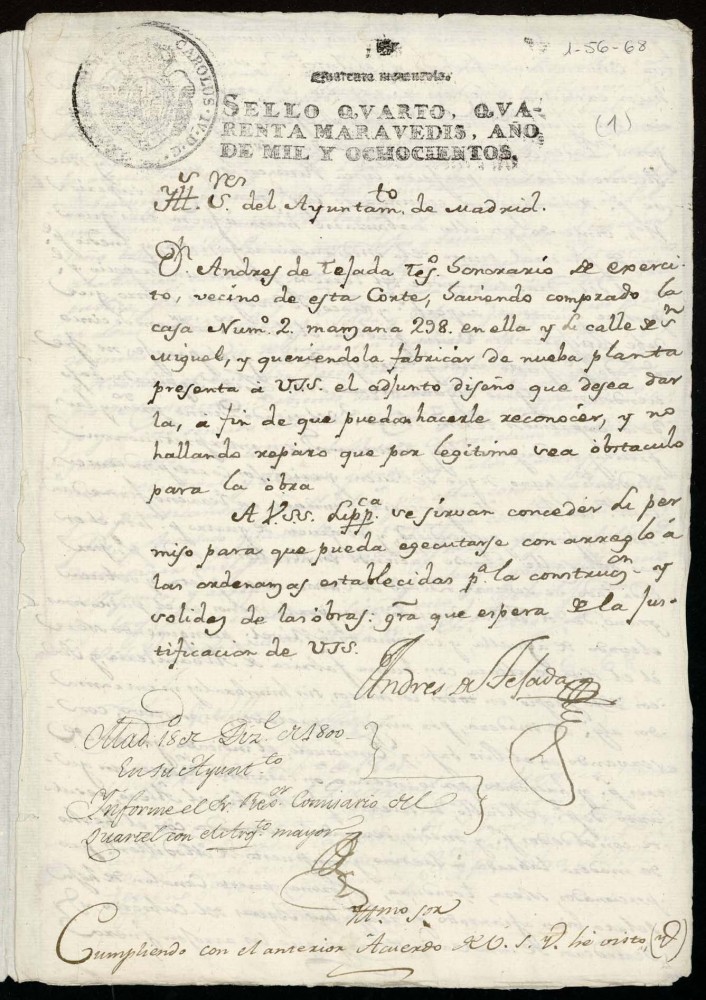 1-56-68
CAROLUS·IV·D·G·
Quarenta maravedis.
SELLO QVARTO, QVA-
RENTA MARAVEDIS, AÑO
DE MIL Y OCHOCIENTOS.
(1)
Ill.s S.res del Ayuntam.to de Madrid.
D.n Andres de Tejada Tes.o honorario de exerci-
to, vecino de esta Corte, haviendo comprado la
casa Num.o 2. manzana 298. en ella y di calle de S.n
Miguel, y queriendola fabricar de nueba planta
presenta à VSS. el adjunto diseño que desea dar
la, a fin de que puedan hacerle reconocer, y no
hallando reparo que por legitimo sea òbstaculo
para la òbra
A V.SS. supp.ca se sirvan conceder di per
miso para que pueda egecutarse con arreglo à
las ordenanzas establecidas p.a la construc.on y
solidez de las òbras: gra que espera de la Jus-
tificacion de VSS.
Andres de Tejada
Mad.d 18 de Diz.e de 1800
En su Ayunt.to
Informe el Sr. Reg.or Comisario del
Quartel con el Arq.to mayor
Ill.mo Sor
Cumpliendo con el anterior Acuerdo de V. S. Y. he visto